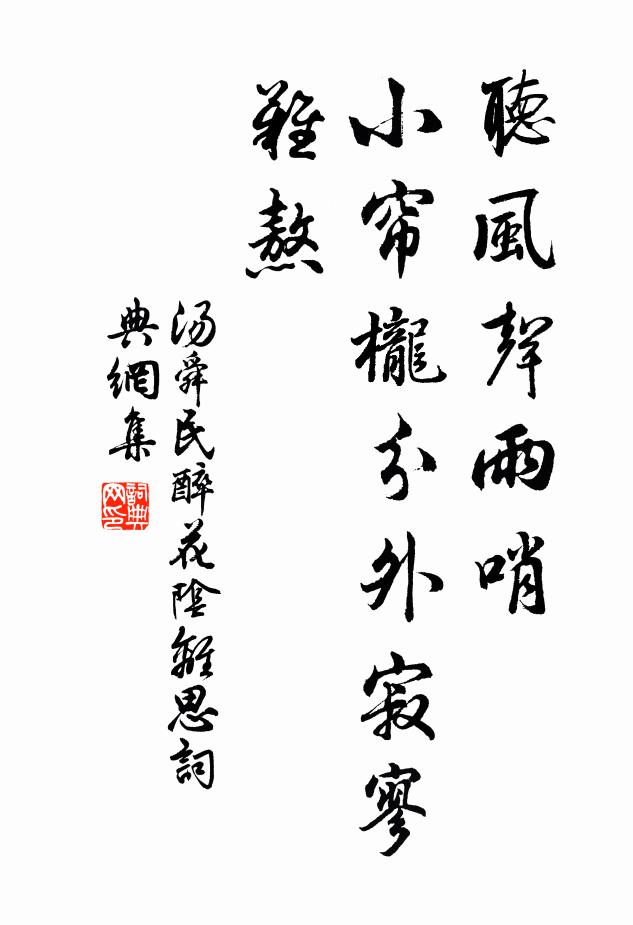 聽風聲雨哨
小帘櫳分外寂寥
難熬
汤舜民醉花陰離思詞
典網集
詞典網印